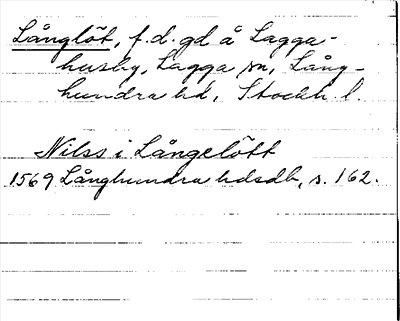 Långlöt, f.d. gd å Lagga-
husby, Lagga sn, Lång-
hundra hd, Stockh. l.
Nilss i Långelött
1569 Långhundra hdsdb, s. 162.